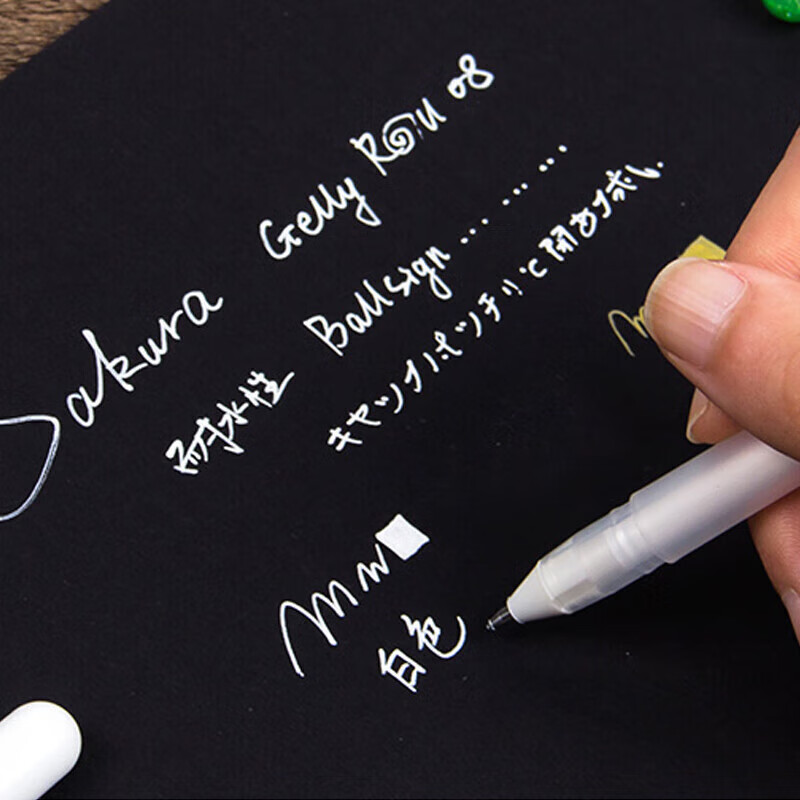 Sakura Gelly Roll 08
耐水性 Ballsign ... ... ...
キャップはポッチリと閉め
白色